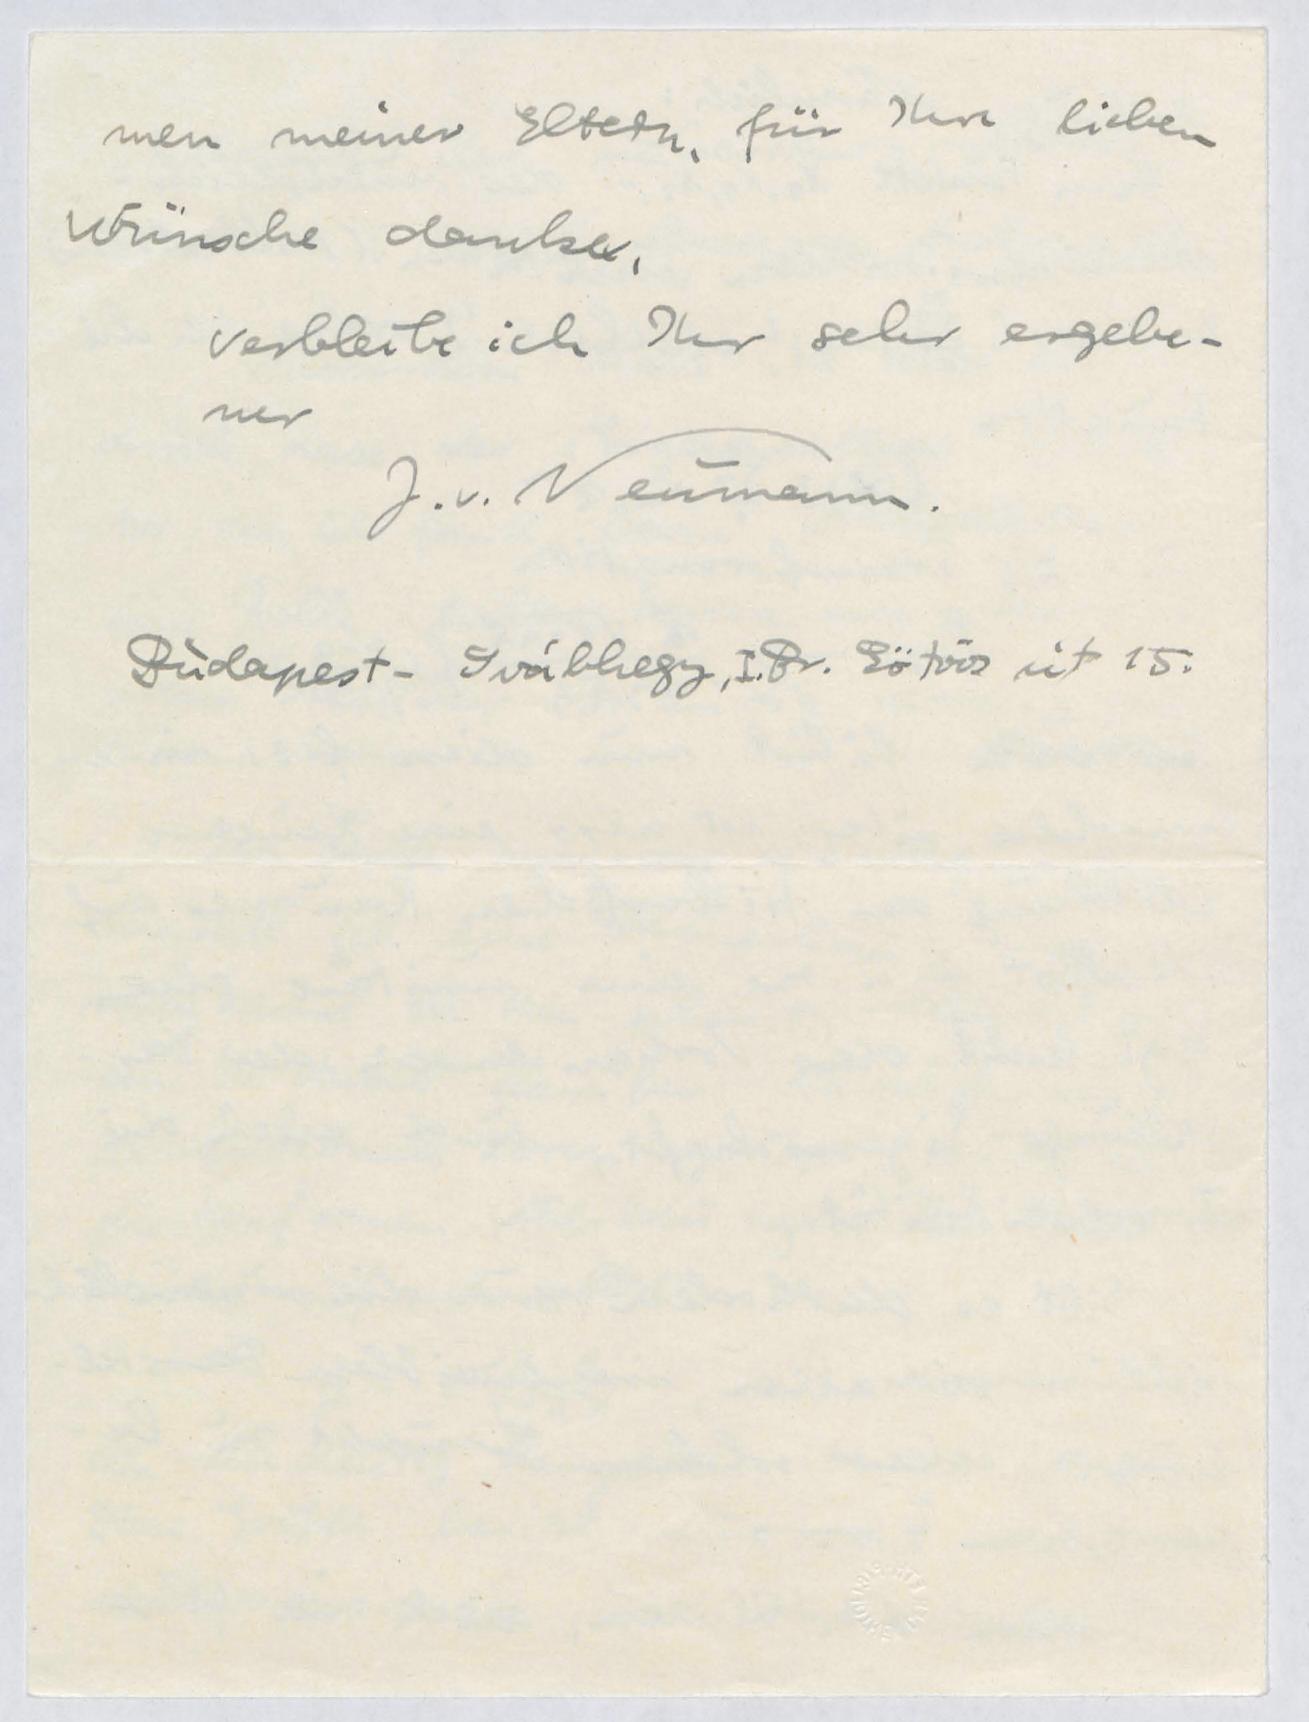 men meiner Eltern, für Ihre lieben
Wünsche danke,
verbleibe ich Ihr sehr ergebe-
ner
J. v. Neumann.
Budapest- Svábhegy, I. Br. Eötvös út 15.